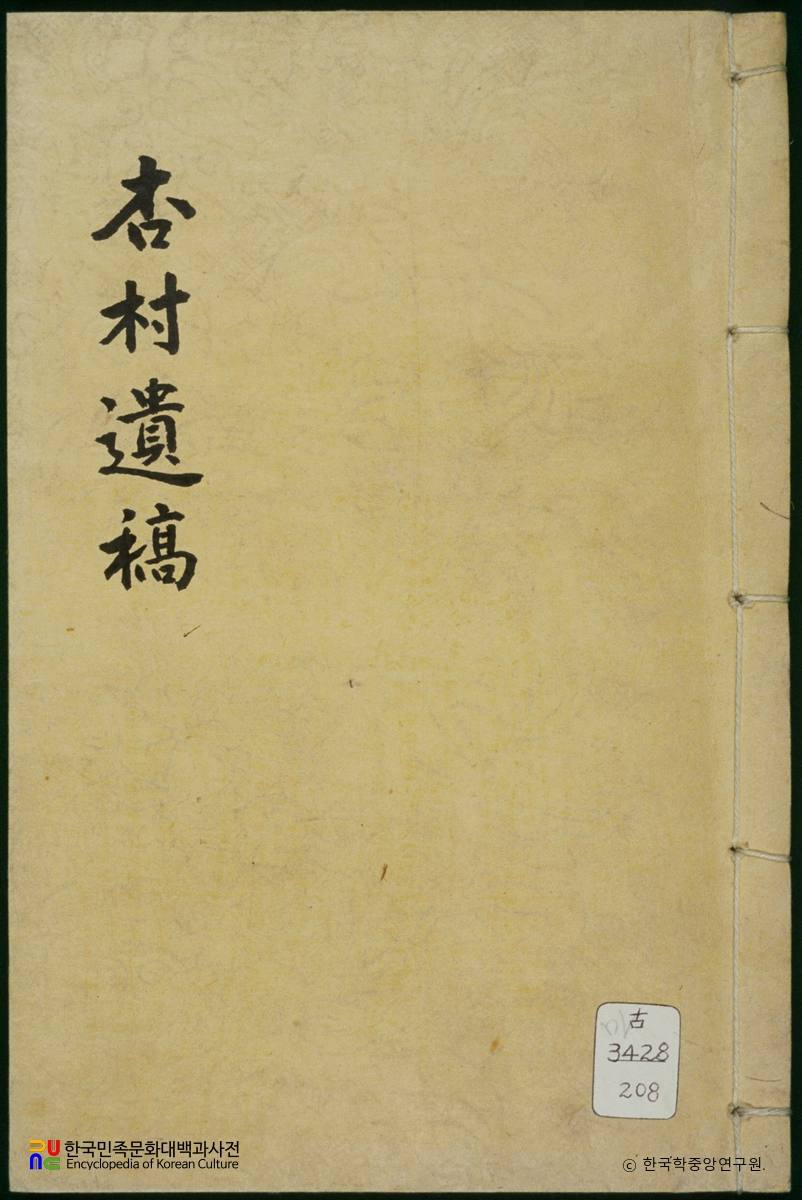 杏村遺稿
古
3428
208
한국민족문화대백과사전
Encyclopedia of Korean Culture
© 한국학중앙연구원.